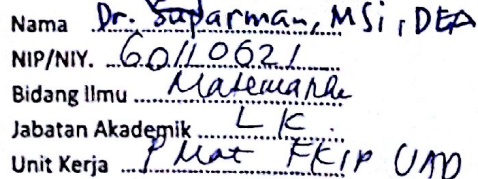 Nama Dr. Suparman, MSi, DEA
NIP/NIY. 60110621
Bidang Ilmu Matematika
Jabatan Akademik LK.
Unit Kerja P Mat FKIP UAD